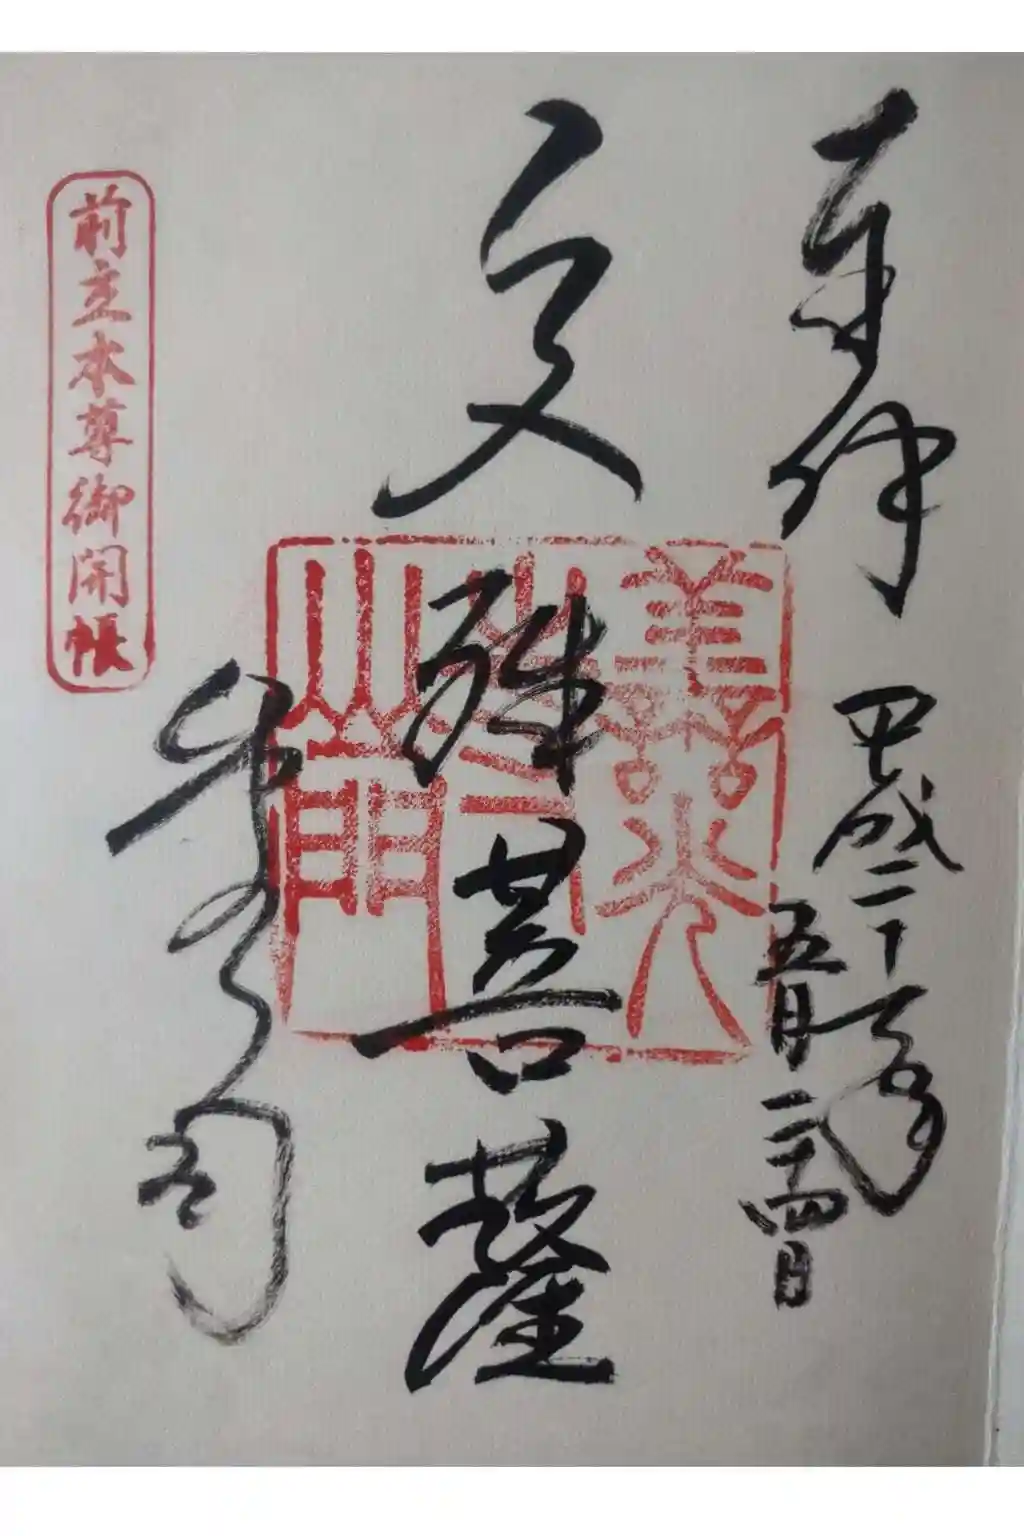 奉拝
平成二十一年
五月二十四日
文殊菩薩
前立本尊御開帳